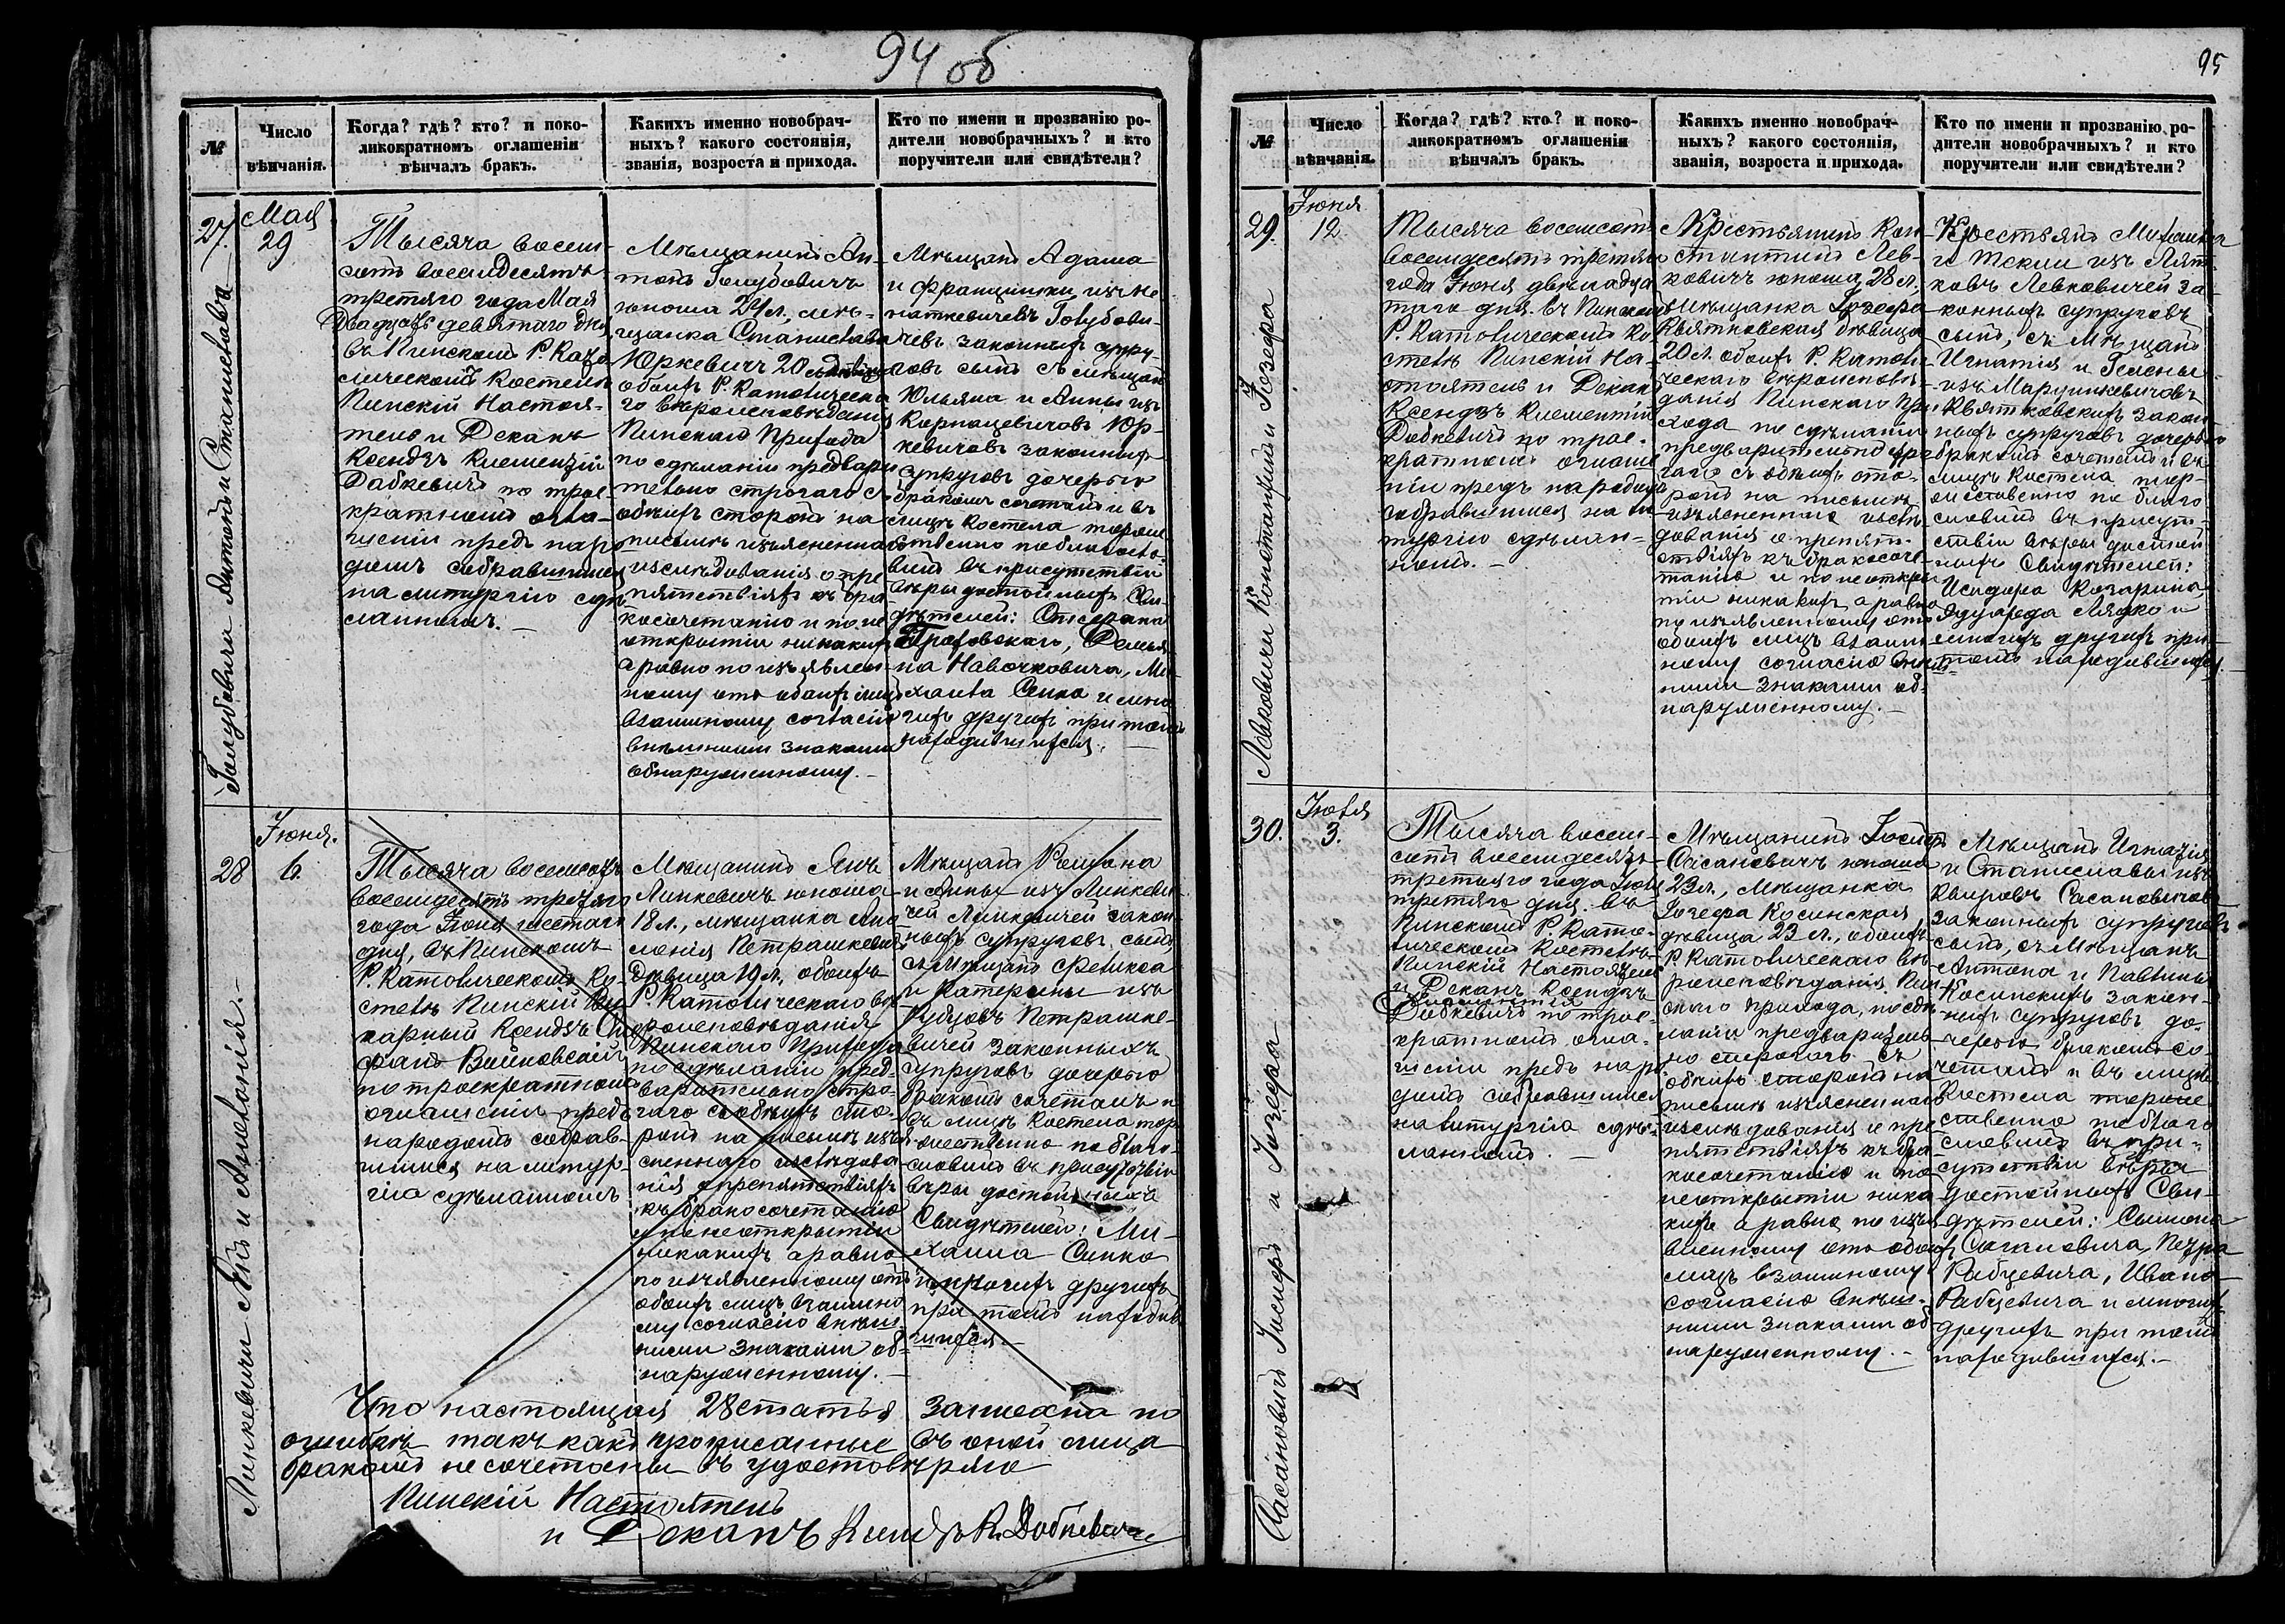 94 об
№
Число
вѣнчанія.
Когда? гдѣ? кто? и поко-
ликократномъ оглашеніи
вѣнчалъ бракъ.
Какихъ именно новобрач-
ныхъ? какого состоянія,
званія, возроста и прихода.
Кто по имени и прозванію ро-
дители новобрачныхъ? и кто
поручители или свидѣтели?
27.
Мая
29
Голубовича Антонъ и Станиславы
Тысяча восем-
сотъ восемдесятъ
третяго года Мая
Двадцать девятаго дня,
въ Пинскомъ Р. Като
лическомъ Костелѣ
Пинскій Настоя-
тель и Деканъ
Ксендзъ Клементій
Дабкевичъ по трое-
кратномъ огла-
шеніи предъ наро
домъ собравшимся
на литургію сдѣ
ланномъ.
Мѣщанинъ Ан-
тонъ Голубовичъ
юноша 24 л., мѣ-
щанка Станислава
Юркевичъ 20 л. дѣвица
обоихъ Р. Католическа
го вѣроисповѣданія
Пинскаго Прихода
по сдѣланіи предвари
тельно строгаго съ
обѣихъ сторонъ на
письмѣ изъясненнаго
изслѣдованія о пре
пятствіяхъ къ бра
косочетанію и по не
открытіи никакихъ
а равно по изъявлен
ному отъ обоихъ лицъ
взаимному согласію
внѣшними знаками
обнаруженному.
Мѣщанъ Адама
и Францишки изъ Иг
наткевичевъ Голубови-
чевъ законныхъ супру-
говъ сынъ съ мѣщанъ
Юльяна и Анны изъ
Карнацевичовъ Юр-
кевичовъ законныхъ
супруговъ дочерью
бракомъ сочетанъ и въ
лицѣ костела торже
ственно поблагосло-
вилъ въ присутствіи
вѣры достойныхъ Сви-
дѣтелей:
на Навочковича, Ми-
хаила Сенко и мно
гихъ другихъ при томъ
находившихся.
28
Июня.
6.
Линкевичи Янъ и Аполонія.
Тысяча восемсотъ
восемдесятъ третяго
года Іюня шестаго
дня, въ Пинскомъ
Р. Католическомъ Ко-
стелѣ Пинскій Ви-
карный Ксендзъ
Войновскій
по троекратномъ
оглашеніи предъ
народомъ собрав-
шимся на литур-
гіа сдѣланномъ
Мѣщанинъ Янъ
Линкевичъ юноша
18 л., мѣщанка Апо
лонія Петрашкевичъ
Дѣвица 19 л. обоихъ
Р. Католическаго вѣ
роисповѣданія
Пинскаго Прихода
по сдѣланіи пред-
варительно стро-
гаго съ обѣихъ сто-
ронъ на письмѣ изъя
сненнаго изслѣдова
нія о препятствіяхъ
къ бракосочетанію
и по не открытіи
никакихъ а равно
по изъявленному отъ
обоихъ лицъ взаимно
му согласію внѣш-
ними знаками об-
наруженному.
Мѣщанъ Романа
и Анны изъ Линкеви
чей Линкевичей закон-
ныхъ супруговъ сынъ,
съ Мѣщанъ Феликса
и Катерины изъ
Петрашке-
вичей законныхъ
супруговъ дочерью
бракомъ сочетанъ и
въ лицѣ костела тор
жественно поблаго-
словилъ въ присутствіи
вѣры достойныхъ
Свидѣтелей: Ми-
хаила Сенко
и многихъ другихъ
при томъ находив
шихся.
Что настоящая 28 статья записана по
ошибкѣ такъ какъ прописанные въ оной лица
бракомъ не сочетаны въ удостовѣряю
Пинскій Настоятель
и Деканъ Ксендзъ К. Дабкевичъ
95
№
Число
вѣнчанія.
Когда? гдѣ? кто? и поко-
ликократномъ оглашеніи
вѣнчалъ бракъ.
Какихъ именно новобрач-
ныхъ? какого состоянія,
званія, возроста и прихода.
Кто по имени и прозванію ро-
дители новобрачныхъ? и кто
поручители или свидѣтели?
29.
Июня
12
Левковичи Константинъ и Іозефа
Тысяча восемсотъ
восемдесятъ третяго
года Іюня двѣнадца
таго дня. въ Пинскомъ
Р. Католическомъ Ко
стелѣ Пинскій На-
стоятель и Деканъ
Ксендзъ Клементій
Дабкевичъ по трое-
кратномъ оглаше
ніи предъ народомъ
собравшимся на ли
тургію сдѣлан-
номъ.
Крестьянинъ Кон
стантинъ Лев-
ковичъ юноша 28 л.
Мѣщанка Іозефа
Квятковская дѣвица
20 л. обоихъ Р. Католи
ческаго вѣроисповѣ-
данія Пинскаго При
хода по сдѣланіи
предварительно стро
гаго съ обѣихъ сто-
ронъ на письмѣ
изъясненнаго изслѣ
дованія о препят-
ствіяхъ къ бракосоче
танію и по не откры
тіи никакихъ а равно
по изъявленному отъ
обоихъ лицъ взаим-
ному согласію внѣш
ними знаками об-
наруженному.
Крестьянъ Михаила
и Теклі изъ Лят-
ковъ Левковичей за-
конныхъ супруговъ
сынъ, съ Мѣщанъ
Игнатія и Гелены
изъ Марцинкевичовъ
Квятковскихъ закон
ныхъ супруговъ дочерью
бракомъ сочетанъ и въ
лицѣ Костела тор-
жественно по благо
словилъ въ присут-
ствіи вѣры достой
ныхъ Свидѣтелей:
Исидора Козарина
Эдуарда Лядко и
многихъ другихъ при
томъ находившихся.
30.
Июля
3.
Сасановичъ Іосифъ и Іозефа
Тысяча восем-
сотъ восемдесятъ
третьяго года Іюля
третяго дня. въ
Пинскомъ Р. Като-
лическомъ Костелѣ
Пинскій Настоятель
и Деканъ Ксендзъ
Клементій
Дабкевичъ по трое-
кратномъ огла-
шеніи предъ наро
домъ собравшимся
на литургіа сдѣ-
ланномъ.
Мѣщанинъ Іосифъ
Сасановичъ юноша
23 л., Мѣщанка
Іозефа Косинская
дѣвица 23 л., обоихъ
Р Католическаго вѣ
роисповѣданія Пин
скаго прихода, по сдѣ
ланіи предваритель
но строгаго съ
обѣихъ сторонъ на
письмѣ изъясненнаго
изслѣдованія о пре
пятствіяхъ къ бра
косочетанію и по
не открытіи ника
кихъ а равно по изъя-
вленному отъ обоихъ
лицъ взаимному
согласію внѣш-
ними знаками об
наруженному.
Мѣщанъ Игнатія
и Станиславы изъ
Сасановичовъ
законныхъ супруговъ
сынъ, съ Мѣщанъ
Антона и Павлины
Косинскихъ закон-
ныхъ супруговъ до-
черью бракомъ со-
четанъ и въ лицѣ
Костела торже
ственно по благо
словилъ въ при-
сутствіи вѣры
достойныхъ Сви-
дѣтелей: Симона
Сасановича, Петра
Рабцевича, Ивана
Рабцевича и многихъ
другихъ при томъ
находившихся.